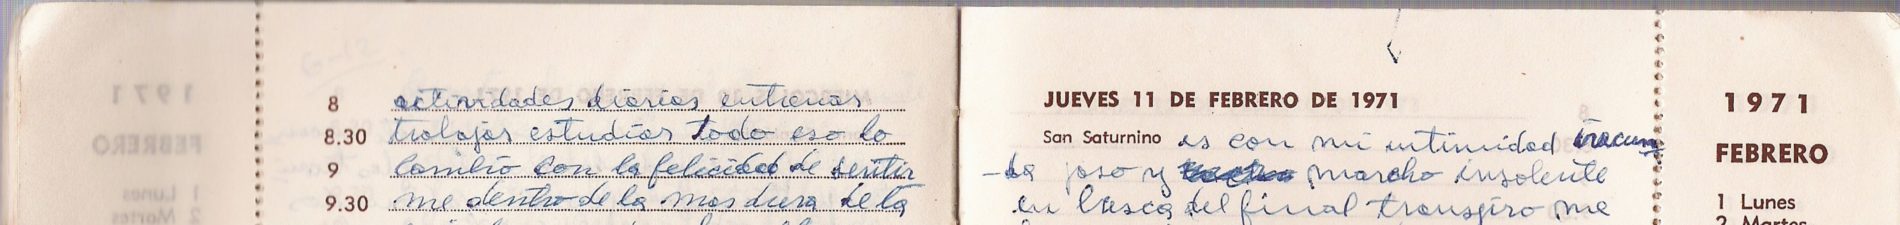 8 actividades diarias entrenar
8.30 trabajar estudiar todo eso lo
9 cambio con la felicidad de sentir
9.30 me dentro de la mas dura de la
JUEVES 11 DE FEBRERO DE 1971
San Saturnino es con mi intimidad iracun
-da joso y marcho insolente
en busca del final transpiro me
1971
FEBRERO
1 Lunes
2 Martes